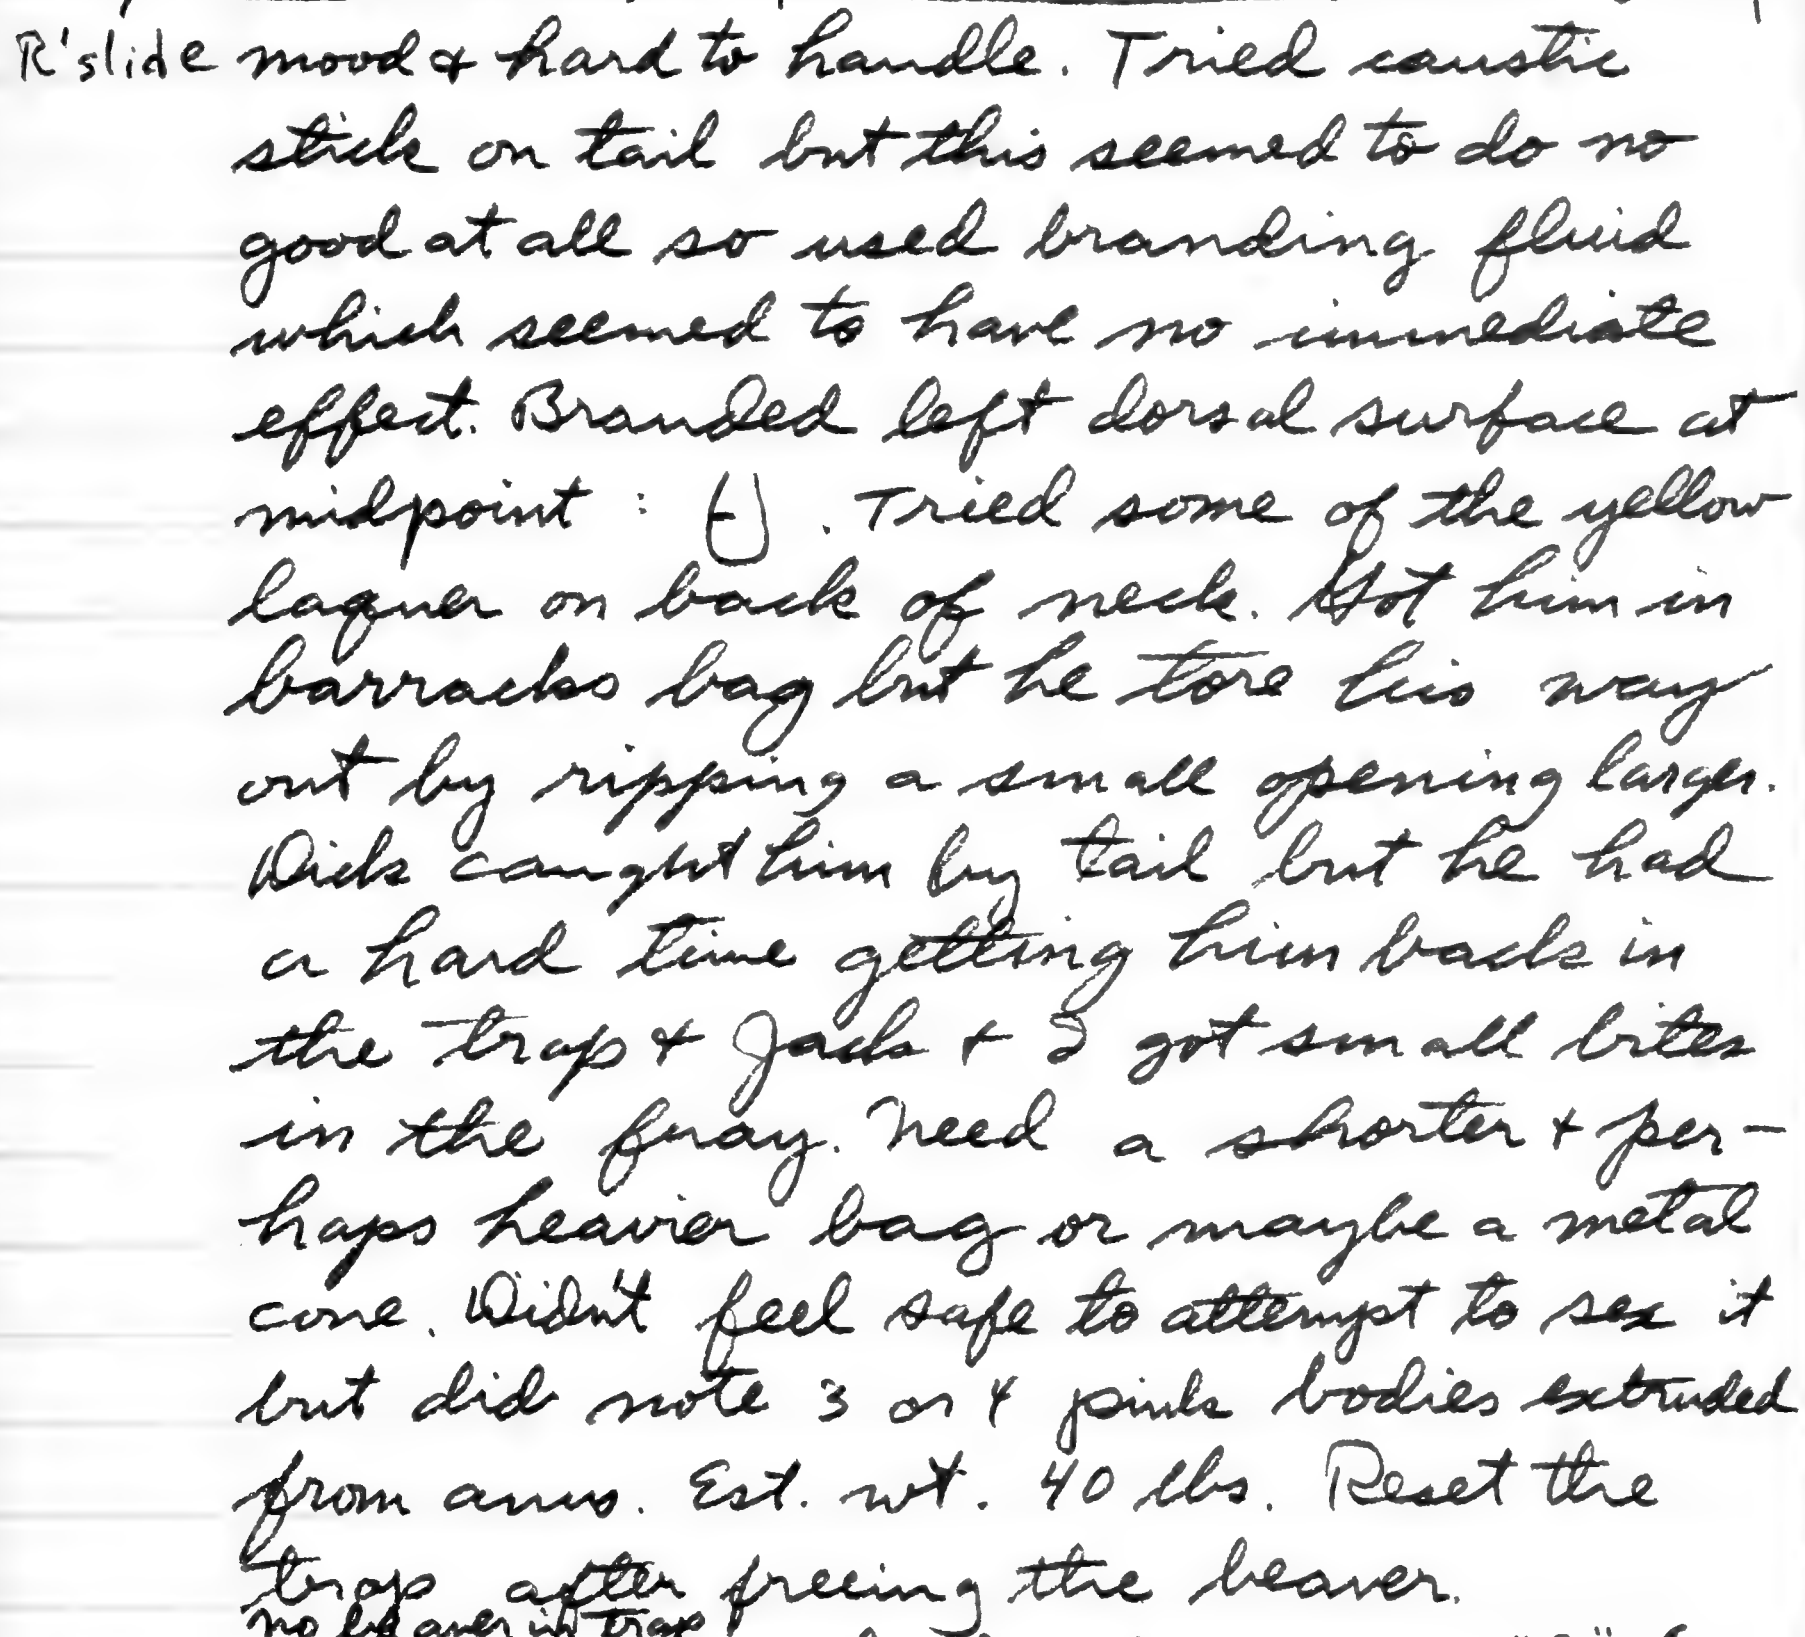 R'slide mood & hard to handle. Tried caustic
stick on tail but this seemed to do no
good at all so used branding fluid
which seemed to have no immediate
effect. Branded left dorsal surface at
midpoint : . Tried some of the yellow
laquer on back of neck. Got him in
barracks bag but he tore his way
out by ripping a small opening larger.
Dick caught him by tail but he had
a hard time getting him back in
the trap & Jack & I got small bites
in the fray. Need a shorter & per-
haps heavier bag or maybe a metal
cone. Didn't feel safe to attempt to sex it
but did note 3 or 4 pink bodies extruded
from anus. Est. wt. 40 lbs. Reset the
trap after freeing the beaver.
no beaver in trap